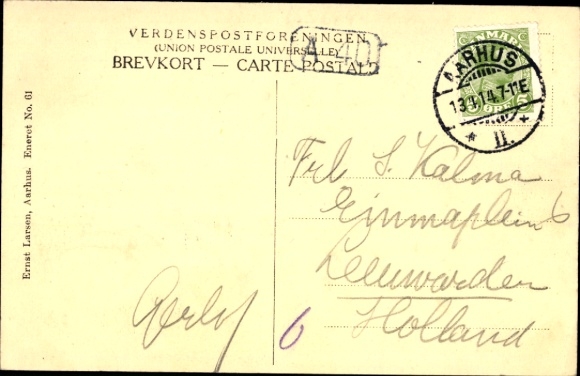 VERDENSPOSTFORENINGEN
(UNION POSTALE UNIVERSELLE)
BREVKORT — CARTE POSTALE
A 40
DANMARK
5 ØRE 5
AARHUS
13.4.14.7-11E
* II. *
Ernst Larsen, Aarhus. Eneret No. 61
Frl S. Kalma
6
Leeuwarden
Holland
6